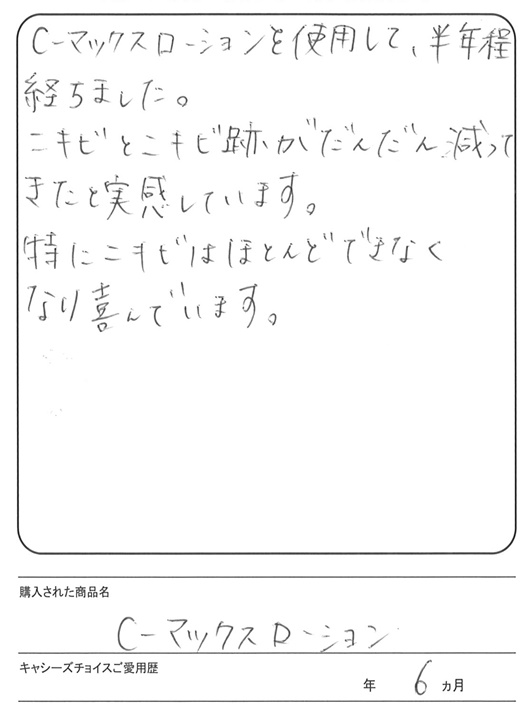 C-マックスローションを使用して、半年程
経ちました。
ニキビとニキビ跡がだんだん減って
きたと実感しています。
特にニキビはほとんどできなく
なり喜んでいます。
購入された商品名
C-マックスローション
キャシーズチョイスご愛用歴
年 6 ヵ月